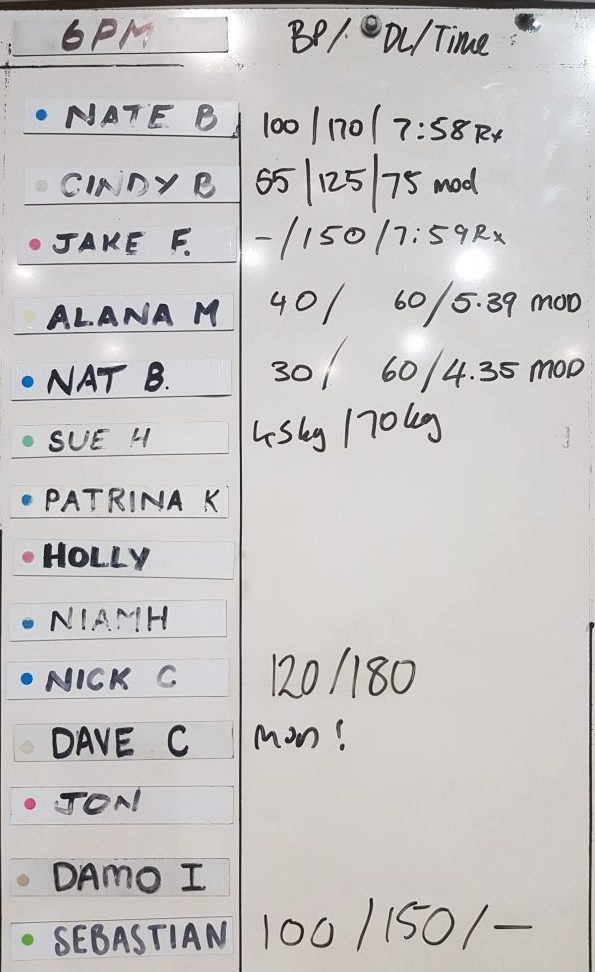 6PM BP/ DL/Time
NATE B 100/170/7:58 Rx
CINDY B 65/125/75 mod
JAKE F. -/150/7:59 Rx
ALANA M 40/ 60/5.39 MOD
NAT B. 30/ 60/4.35 MOD
SUE H 45kg/70kg
PATRINA K
HOLLY
NIAMH
NICK C 120/180
DAVE C !
JON
DAMO I
SEBASTIAN 100/150/-